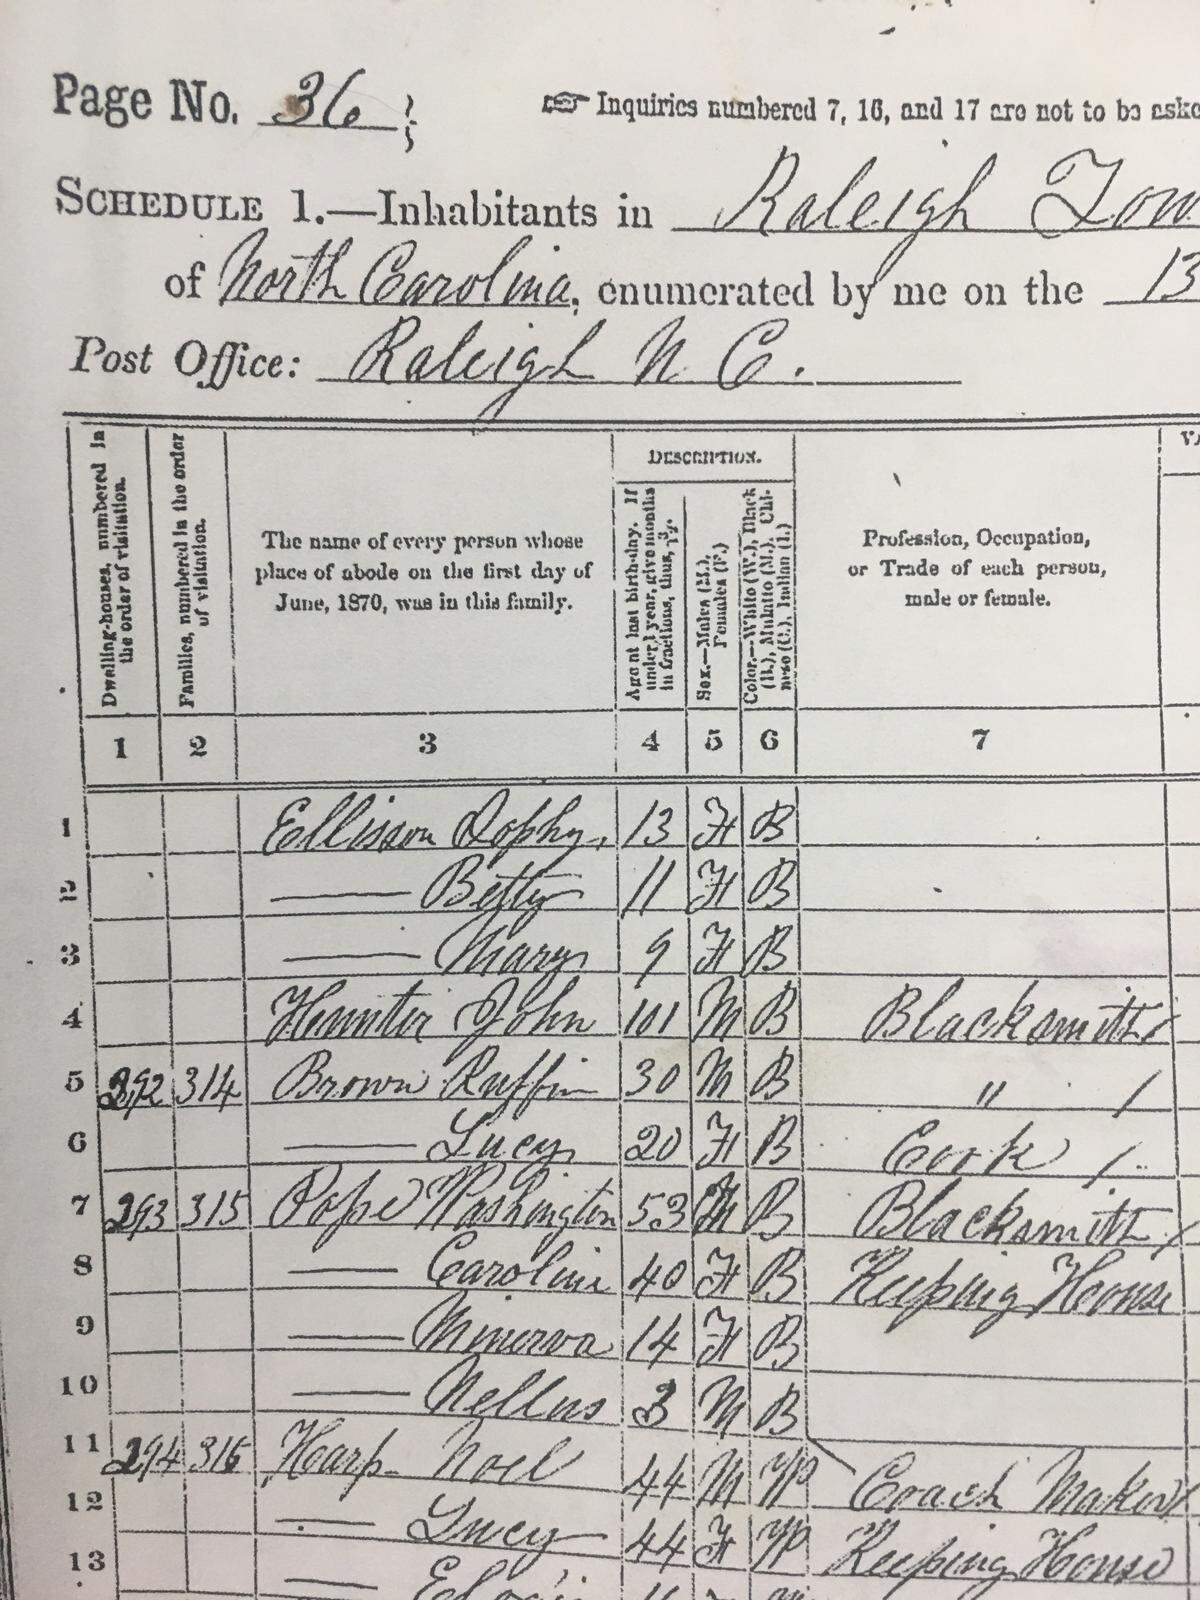 Page No. 36
☞ Inquiries numbered 7, 16, and 17 are not to be aske
SCHEDULE 1.—Inhabitants in Raleigh Tow
of North Carolina, enumerated by me on the 13
Post Office: Raleigh N C.
Dwelling-houses, numbered in the order of visitation.
Families, numbered in the order of visitation.
The name of every person whose
place of abode on the first day of
June, 1870, was in this family.
DESCRIPTION.
Age at last birth-day. If under 1 year, give months in fractions, thus, 3/12
Sex.—Males (M.), Females (F.)
Color.—White (W.), Black (B.), Mulatto (M.), Chinese (C.), Indian (I.)
Profession, Occupation,
or Trade of each person,
male or female.
VA
1 2 3 4 5 6 7
1 Ellison Dophy, 13 F B
2 —— Betty 11 F B
3 —— Mary 9 F B
4 Hunter John 101 M B Blacksmith /
5 292 314 Brown Ruffin 30 M B " /
6 —— Lucy 20 F B Cook /
7 293 315 Pope Washington 53 M B Blacksmith /
8 —— Caroline 40 F B Keeping House
9 —— Minerva 14 F B
10 —— Nellus 3 M B
11 294 316 Harp Noel 44 M W Coach Maker /
12 —— Lucy 44 F W Keeping House
13 ——